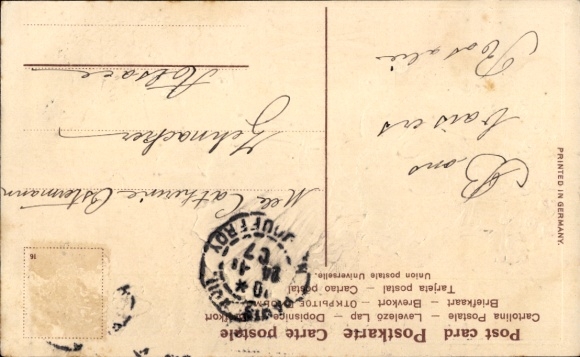 Post card Postkarte Carte postale
Cartolina Postale — Levelező Lap — Dopisnice —
Briefkaart — Brevkort — ОТКРЫТОЕ
Tarjeta postal — Cartao postal
Union postale Universelle.
PRINTED IN GERMANY.
Bons
baisers
Rosalie
Mlle Catherine Ostermann
Alsace
JOUFFROY
07
16